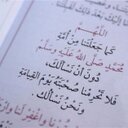 اللَّهُمَّ
كَمَا جَعَلْتَنَا مِنْ أُمَّةِ
مُحَمَّدٍ صَلَّى اللهُ عَلَيْهِ وَسَلَّمَ
دُونَ أَنْ نَسْأَلَكَ
فَلَا تَحْرِمْنَا صُحْبَتَهُ يَوْمَ الْقِيَامَةِ
وَنَحْنُ نَسْأَلُكَ